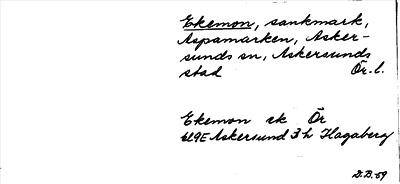 Ekemon, sankmark,
Aspamarken, Asker-
sunds sn, Askersunds
stad Ör.l.
Ekemon ek Ör
9E Askersund 3h Hagaberg
D.B. 59